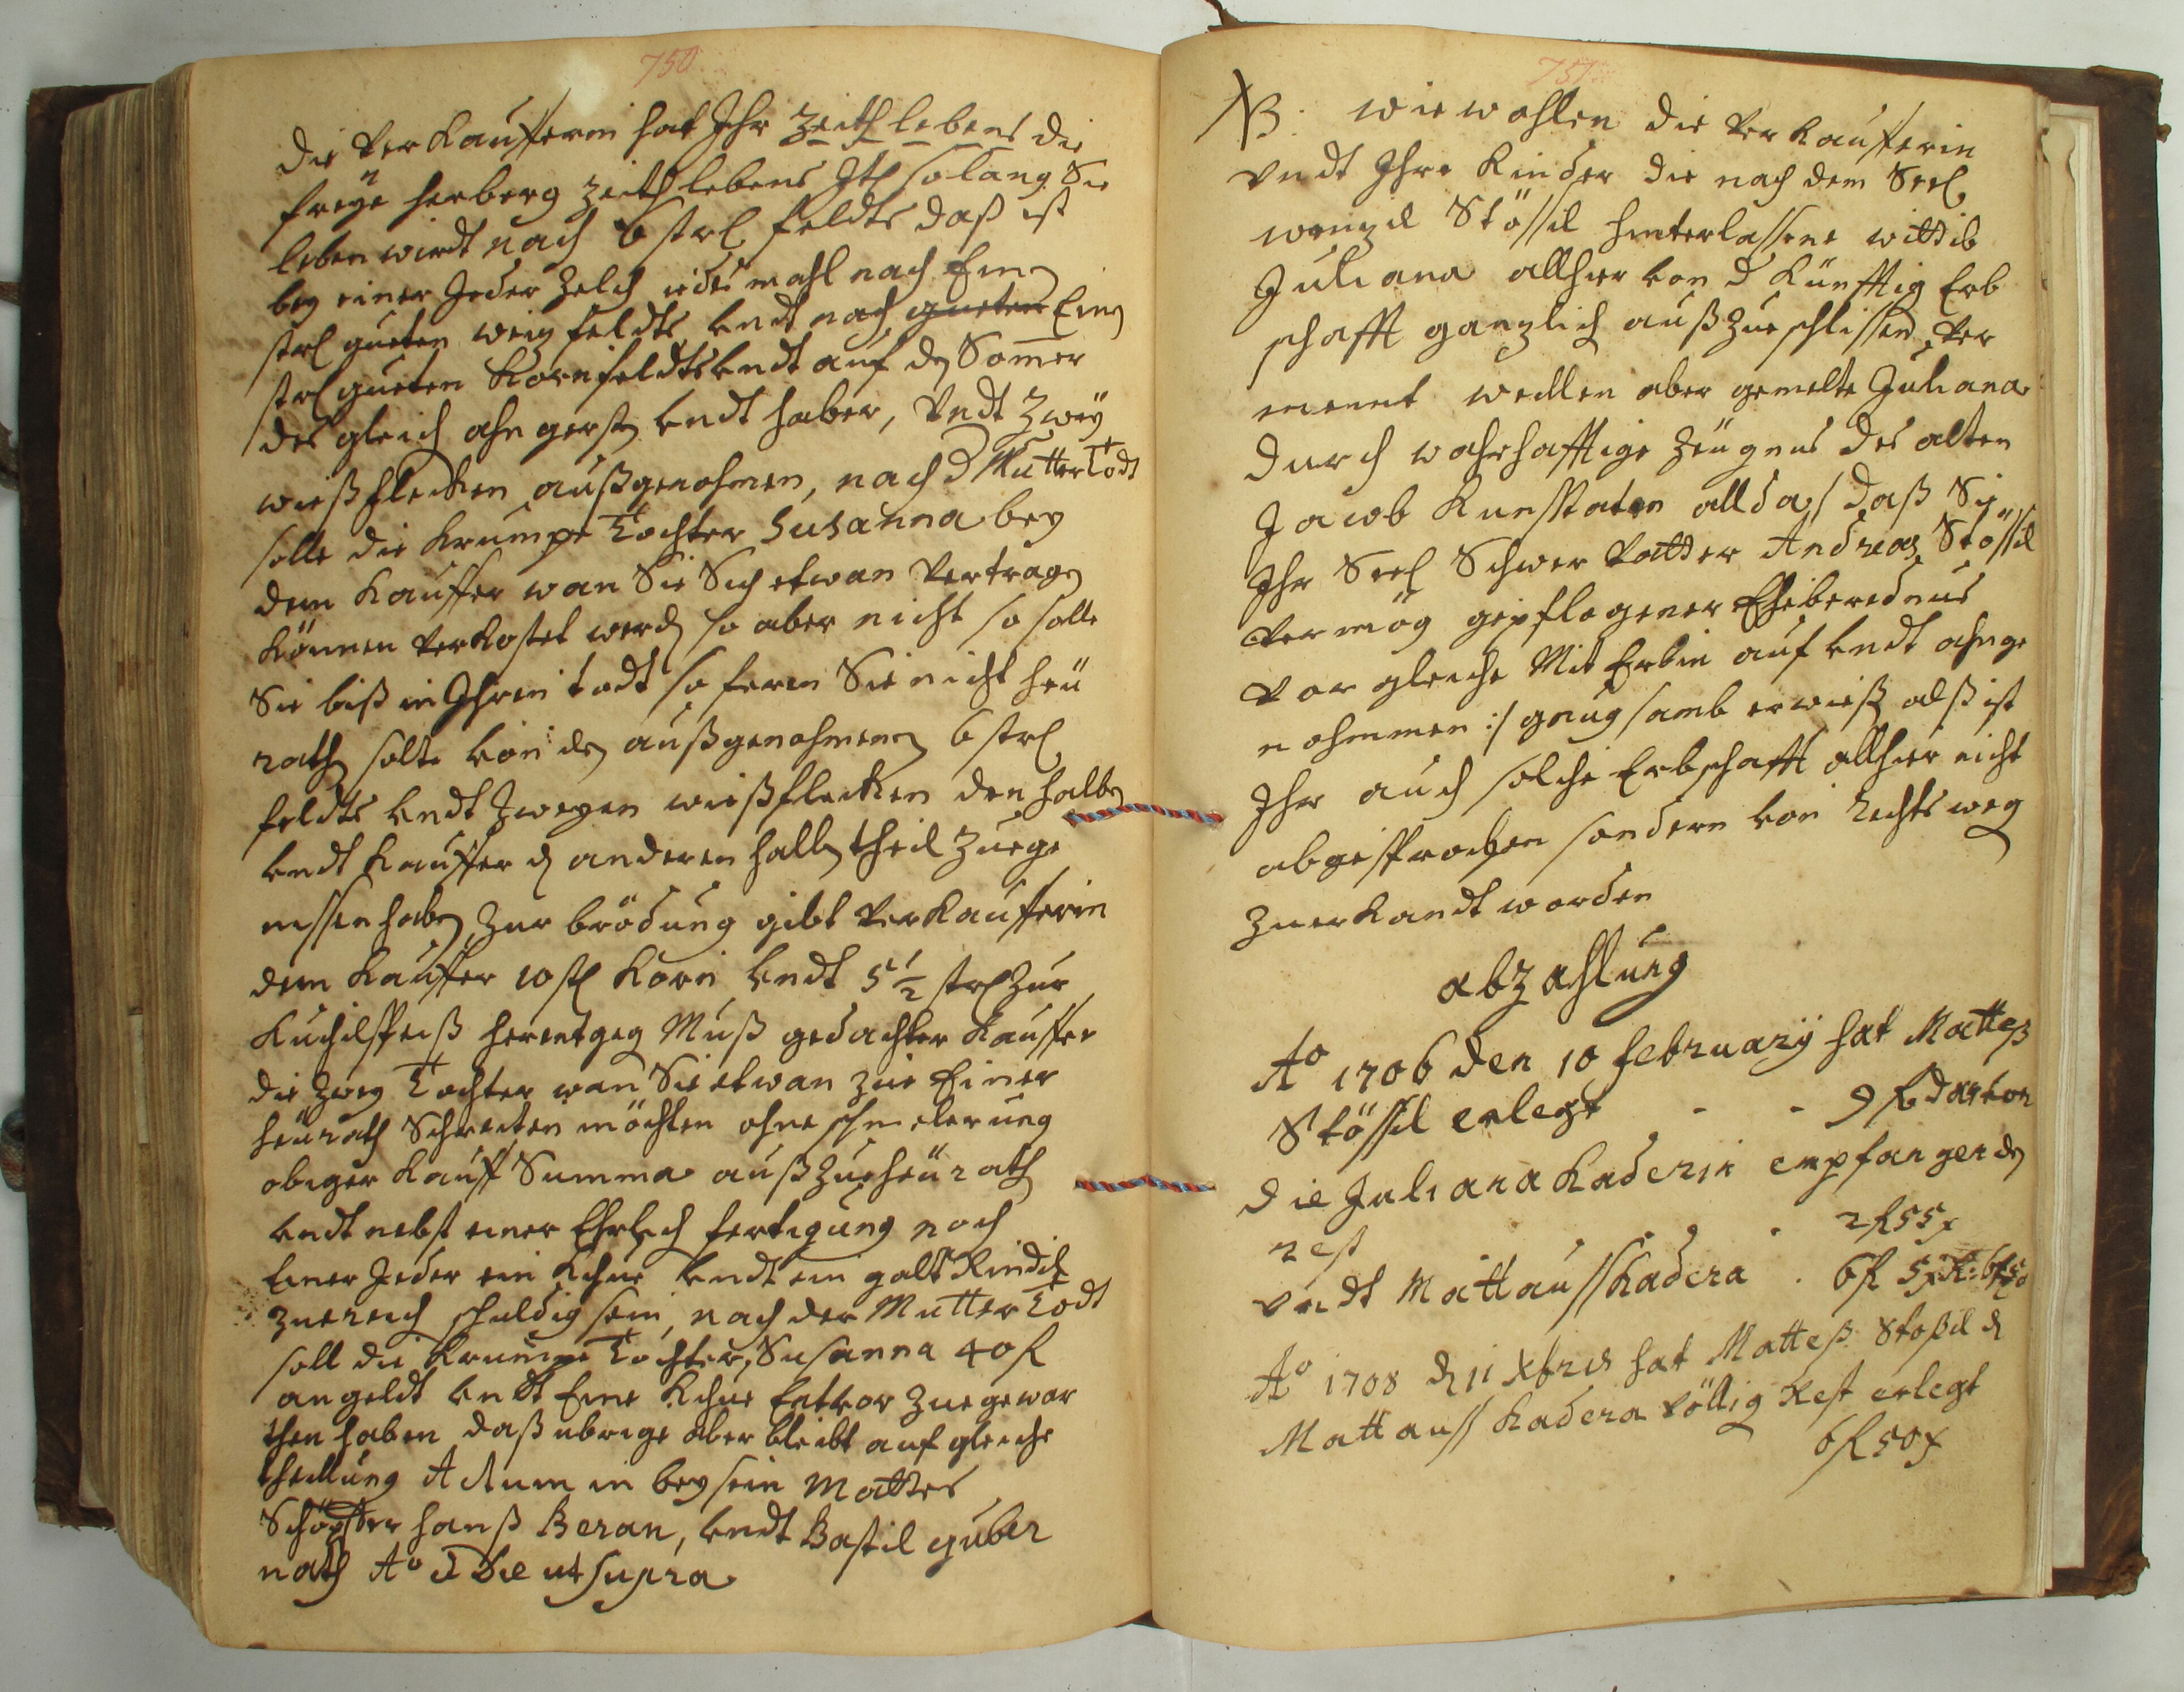 750
die Verkaufferin hat Ihr Zeith lebens die
freÿe herberg Zeith lebens Itl solang Sie
leben wirdt nach 6 strl feldts daß ist
beÿ einer Jeder Zelch iedes mahl nach Einen
strl gueten weiz feldts undt nach gueten Einen
strl gueten Kornfeldts undt auf den Som̄er
des gleich ahn gersten undt haber, Undt Zweÿ
wießflecken außgenohmen, nach d Mutter Todt
solle die Krumpe Tochter Susanna beÿ
dem Kauffer wan Sie Sich etwan Vertragen
Können Verkostet werden so aber nicht so solle
Sie biß in Ihren todt so fern Sie nicht heü
rathen solte von den außgenohmenen 6 strl
feldts undt Zweyen wießflecken den halben
undt Kauffer den anderen halben theil Zuege
niessen haben, Zur brödung gibt Verkaufferin
dem Kauffer 10 stl Korn undt 5 1/2 strl Zur
Kuchlspeiß herentgeg Muß gedachter Kauffer
die Zweÿ Tochter wan Sie etwan zue Einer
heürath Schreiten möchten ohne schmelerung
obiger Kauff Summa außzueheürathen
undt nebst einer Ehrlich fertigung noch
Einer Jeder ein Kuhe undt ein galt Rindl
zuereich schuldig sein, nach der Mutter Todt
soll die Krumpe Tochter, Susanna 40 fl
an geldt undt Eine Kuhe Entvor Zuegewar
then haben daß ubrige aber bleibt auf gleiche
theillung Actum in beÿsein Mattes
Schöpffer hanß Beran, undt Bastil guber
nath Ao et Die ut supra
751
NB: wie wohlen die Verkaufferin
Undt Ihre Kinder die nach dem Seel
wenzel Stössil hinterlassene wittib
Juliana allhier von d Künfftig Erb
schafft ganzlich außzueschlissen Ver
meint weillen aber gemelte Juliana
durch wahrhafftige Zeügnus des alten
Jacob Kunstaten allda / daß Sie
Ihr Seel Schwer Vatter Andreas Stössil
Vermög gepflogener Eheberednus
Vor gleiche Mit Erbin auf undt ahnge
nohmmen :/ gnugsamb erwiesen alß ist
Ihr auch solche Erbschafft allhier nicht
abgesprochen sondern von Rechts weg
zuerkandt worden
abzahlung
Ao 1706 den 10 februarÿ hat Matteß
Stössil erlegt - - 9 fl darvon
die Juliana Kaderin empfangen den
rest . 2 fl 55 x
Undt Mattauss Kadera . 6 fl 5 x
Ao 1708 den 11 Xbris hat Matteß Stoßil dem
Mattauss Kadera Völlig Rest erlegt
6 fl 50 x